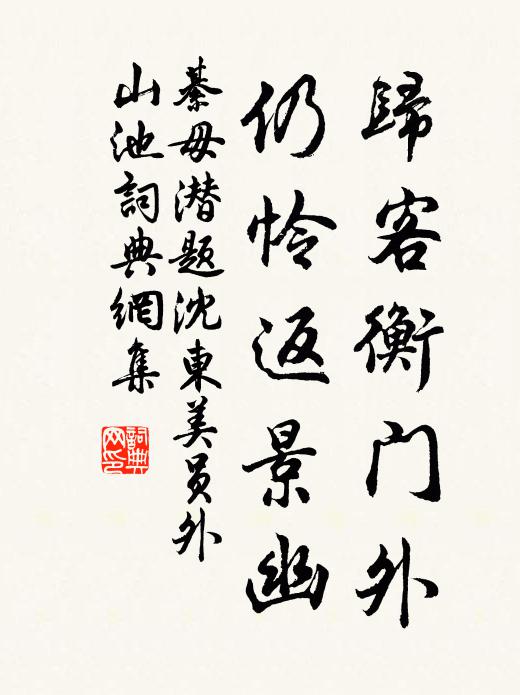 歸客衡门外
仍怜返景幽
綦毋潜题沈東美员外
山池詞典網集
詞典
网印